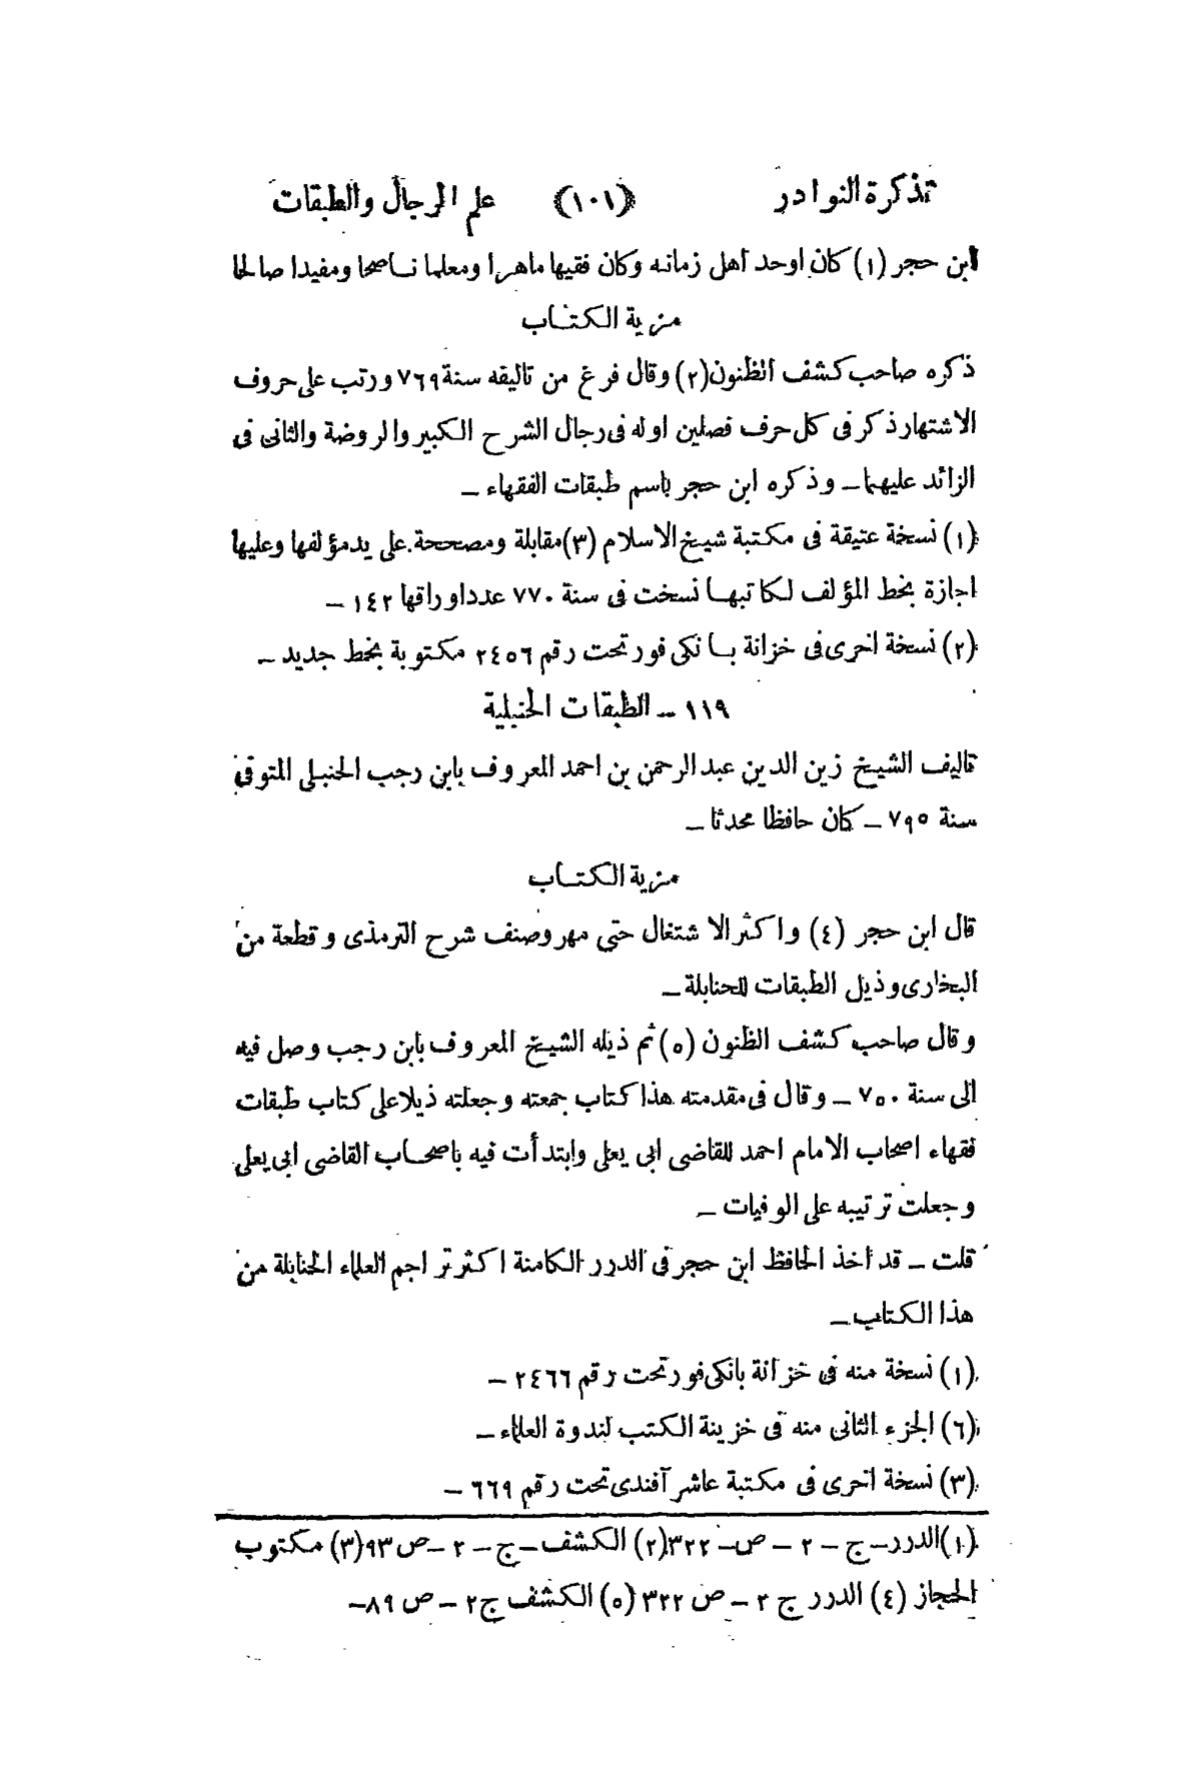 تذكرة النوادر (١٠١) علم الرجال والطبقات
ابن حجر (١) كان اوحد اهل زمانه وكان فقيها ماهرا ومعلما ناصحا ومفيدا صالحا
مزية الكتاب
ذكره صاحب كشف الظنون (٢) وقال فرغ من تاليفه سنة ٧٦٩ ورتب على حروف
الاشتهار ذكر فى كل حرف فصلين اوله فى رجال الشرح الكبير والروضة والثانى فى
الزائد عليهما ـ وذكره ابن حجر باسم طبقات الفقهاء ـ
(١) نسخة عتيقة فى مكتبة شيخ الاسلام (٣) مقابلة ومصححة على يد مؤلفها وعليها
اجازة بخط المؤلف لكاتبها نسخت فى سنة ٧٧٠ عدد اوراقها ١٤٢ ـ
(٢) نسخة اخرى فى خزانة بانكى فور تحت رقم ٢٤٥٦ مكتوبة بخط جديد ـ
١١٩ ـ الطبقات الحنبلية
تاليف الشيخ زين الدين عبد الرحمن بن احمد المعروف بابن رجب الحنبلى المتوفى
سنة ٧٩٥ ـ كان حافظا محدثا ـ
مزية الكتاب
قال ابن حجر (٤) واكثر الاشتغال حتى مهر وصنف شرح الترمذى وقطعة من
البخارى وذيل الطبقات للحنابلة ـ
وقال صاحب كشف الظنون (٥) ثم ذيله الشيخ المعروف بابن رجب وصل فيه
الى سنة ٧٥٠ ـ وقال فى مقدمته هذا كتاب جمعته وجعلته ذيلا على كتاب طبقات
فقهاء اصحاب الامام احمد للقاضى ابى يعلى وابتدأت فيه باصحاب القاضى ابى يعلى
وجعلت ترتيبه على الوفيات ـ
قلت ـ قد اخذ الحافظ ابن حجر فى الدرر الكامنة اكثر تراجم العلماء الحنابلة من
هذا الكتاب ـ
(١) نسخة منه فى خزانة بانكى فور تحت رقم ٢٤٦٦ ـ
(٦) الجزء الثانى منه فى خزينة الكتب لندوة العلماء ـ
(٣) نسخة اخرى فى مكتبة عاشر آفندى تحت رقم ٦٦٩ ـ
(١) الدرر ـ ج ـ ٢ ـ ص ـ ٣٢٢ (٢) الكشف ـ ج ـ ٢ ـ ص ٩٣ (٣) مكتوب
الحجاز (٤) الدرر ج ٢ ـ ص ٣٢٢ (٥) الكشف ج ٢ ـ ص ٨٩ ـ